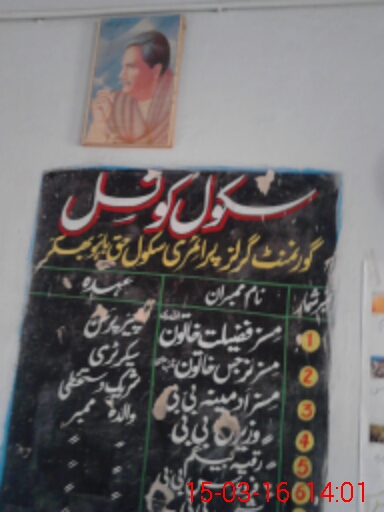 سکول کونسل
گورنمنٹ گرلز پرائمری سکول بھکر
نمبر شمار نام ممبران عہدہ
1 مسز فضیلت خاتون چیئر پرسن
2 مسز نرجس خاتون سیکرٹری
3 مسز امینہ بی بی شریک دستخطی
4 〃 وزیراں بی بی والدہ ممبر
5 〃 رقیہ بیگم 〃 〃
6 بی بی 〃 〃
15-03-16 14:01